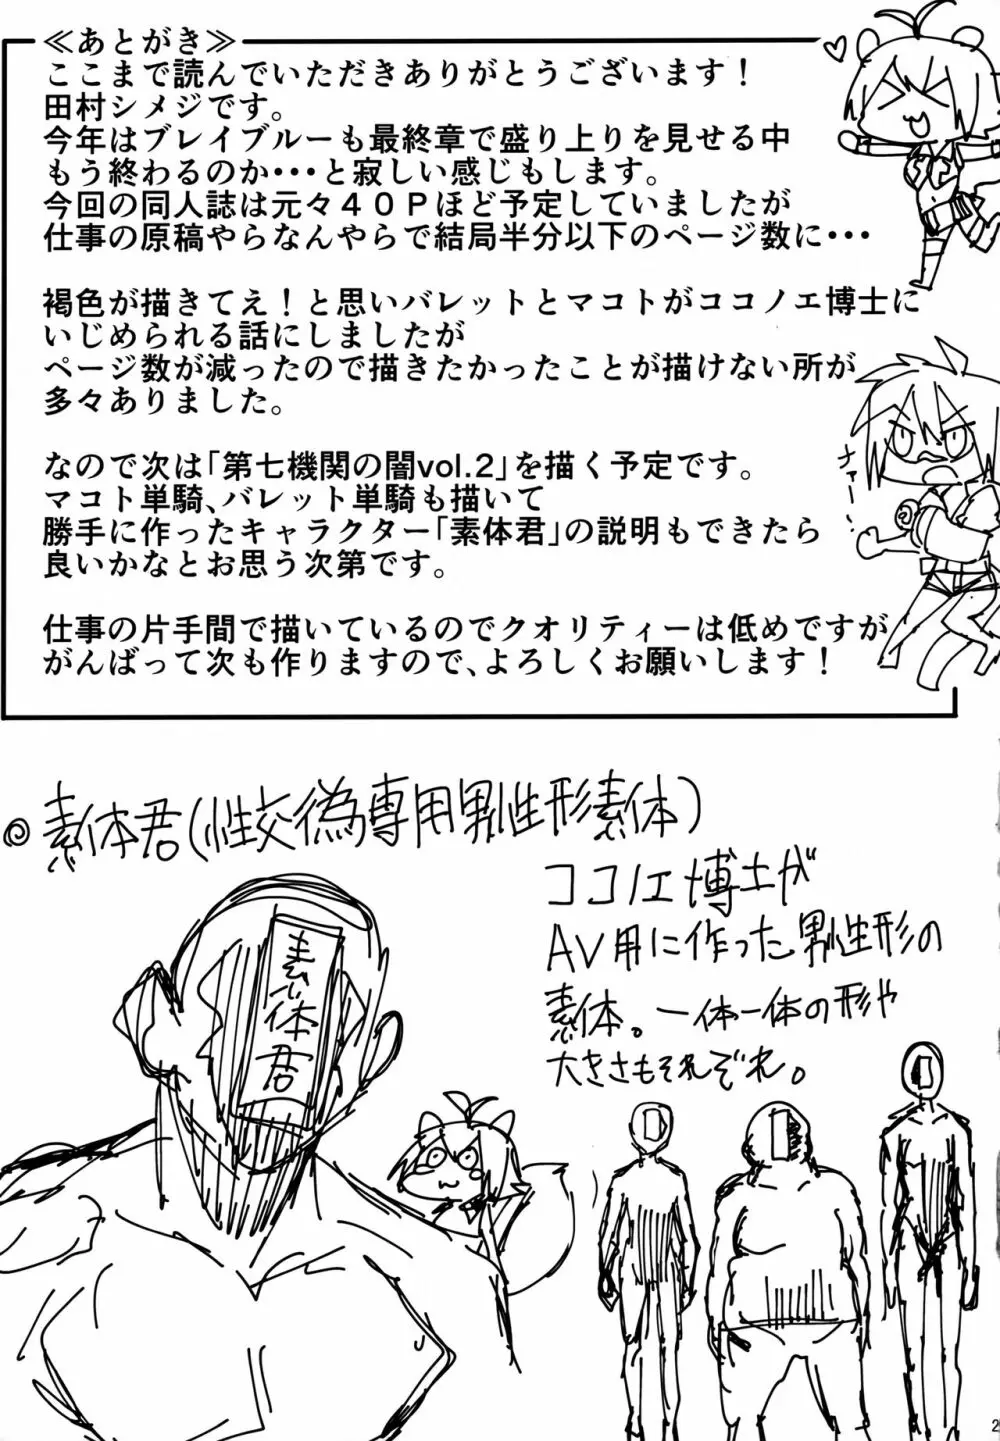 ≪あとがき≫
ここまで読んでいただきありがとうございます！
田村シメジです。
今年はブレイブルーも最終章で盛り上りを見せる中
もう終わるのか・・・と寂しい感じもします。
今回の同人誌は元々４０Ｐほど予定していましたが
仕事の原稿やらなんやらで結局半分以下のページ数に・・・
褐色が描きてえ！と思いバレットとマコトがココノエ博士に
いじめられる話にしましたが
ページ数が減ったので描きたかったことが描けない所が
多々ありました。
なので次は「第七機関の闇vol.2」を描く予定です。
マコト単騎、バレット単騎も描いて
勝手に作ったキャラクター「素体君」の説明もできたら
良いかなとお思う次第です。
仕事の片手間で描いているのでクオリティーは低めですが
がんばって次も作りますので、よろしくお願いします！
ナァー…!
◎素体君(性交為専用男性形素体)
ココノエ博士が
AV用に作った男性形の
素体。一体一体の形や
大きさもそれぞれ。
素体君
2